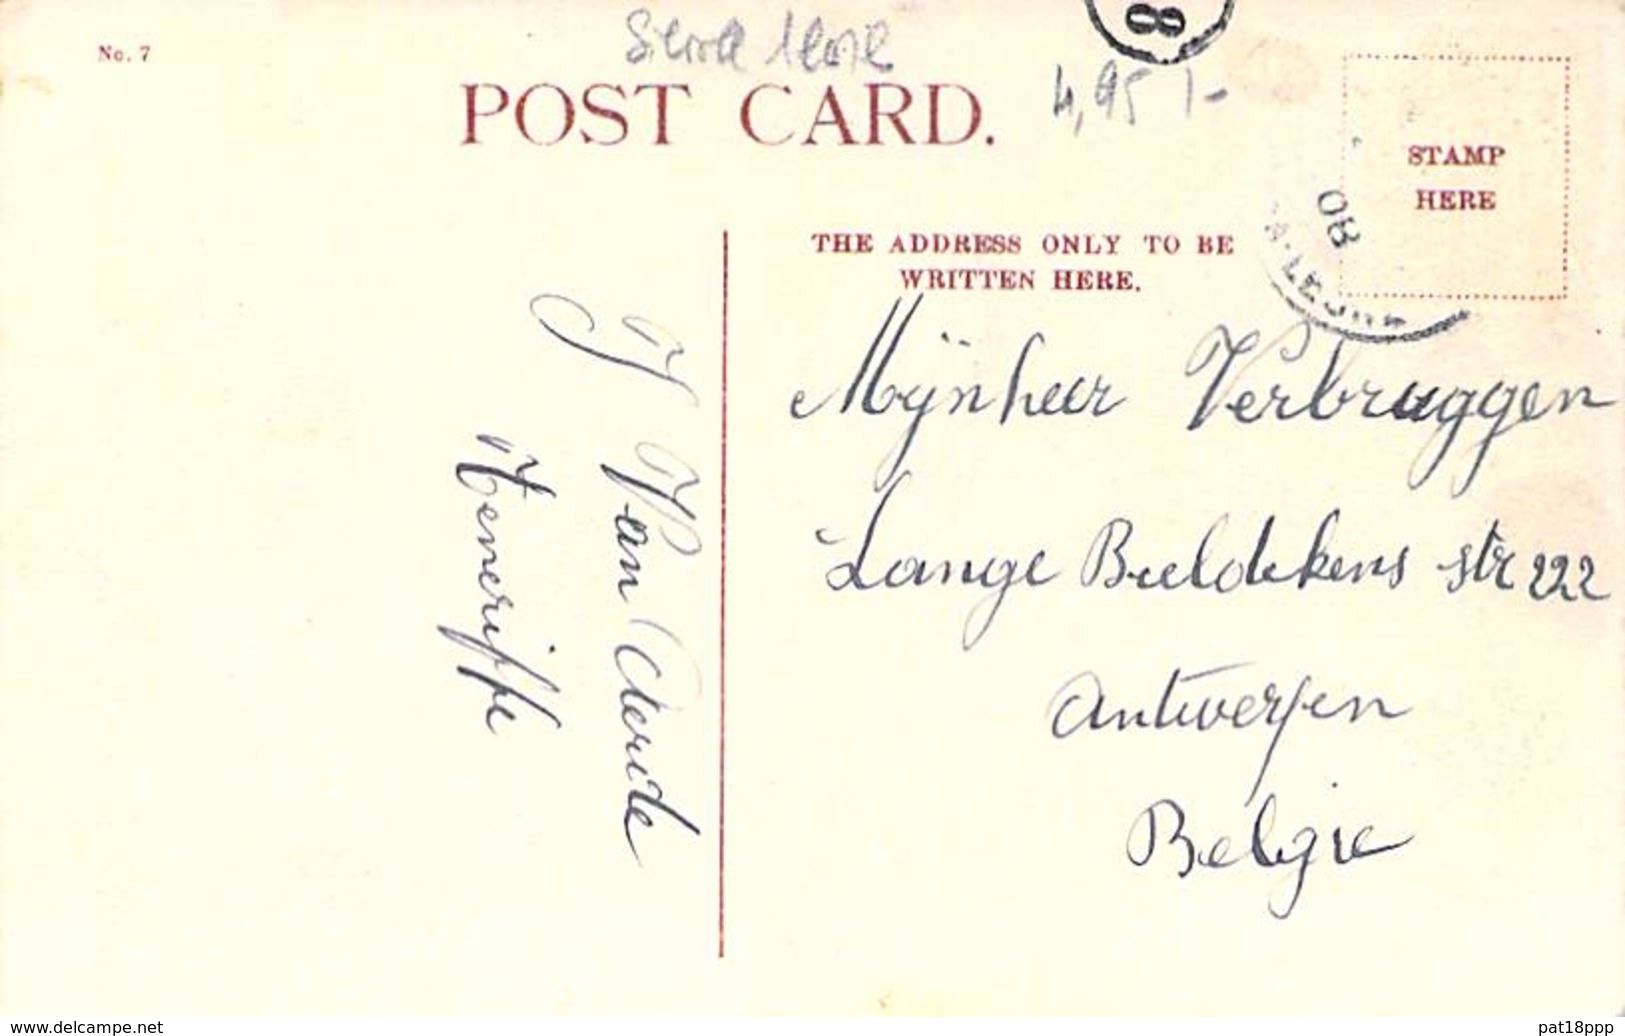 No. 7
Sierra Leone
8
4,95 1-
POST CARD.
STAMP
HERE
08
THE ADDRESS ONLY TO BE
WRITTEN HERE.
Mijnheer Verbruggen
Lange Beeldekens str 222
Antwerpen
Belgie
Van
Teneriffe
www.delcampe.net
pat18ppp